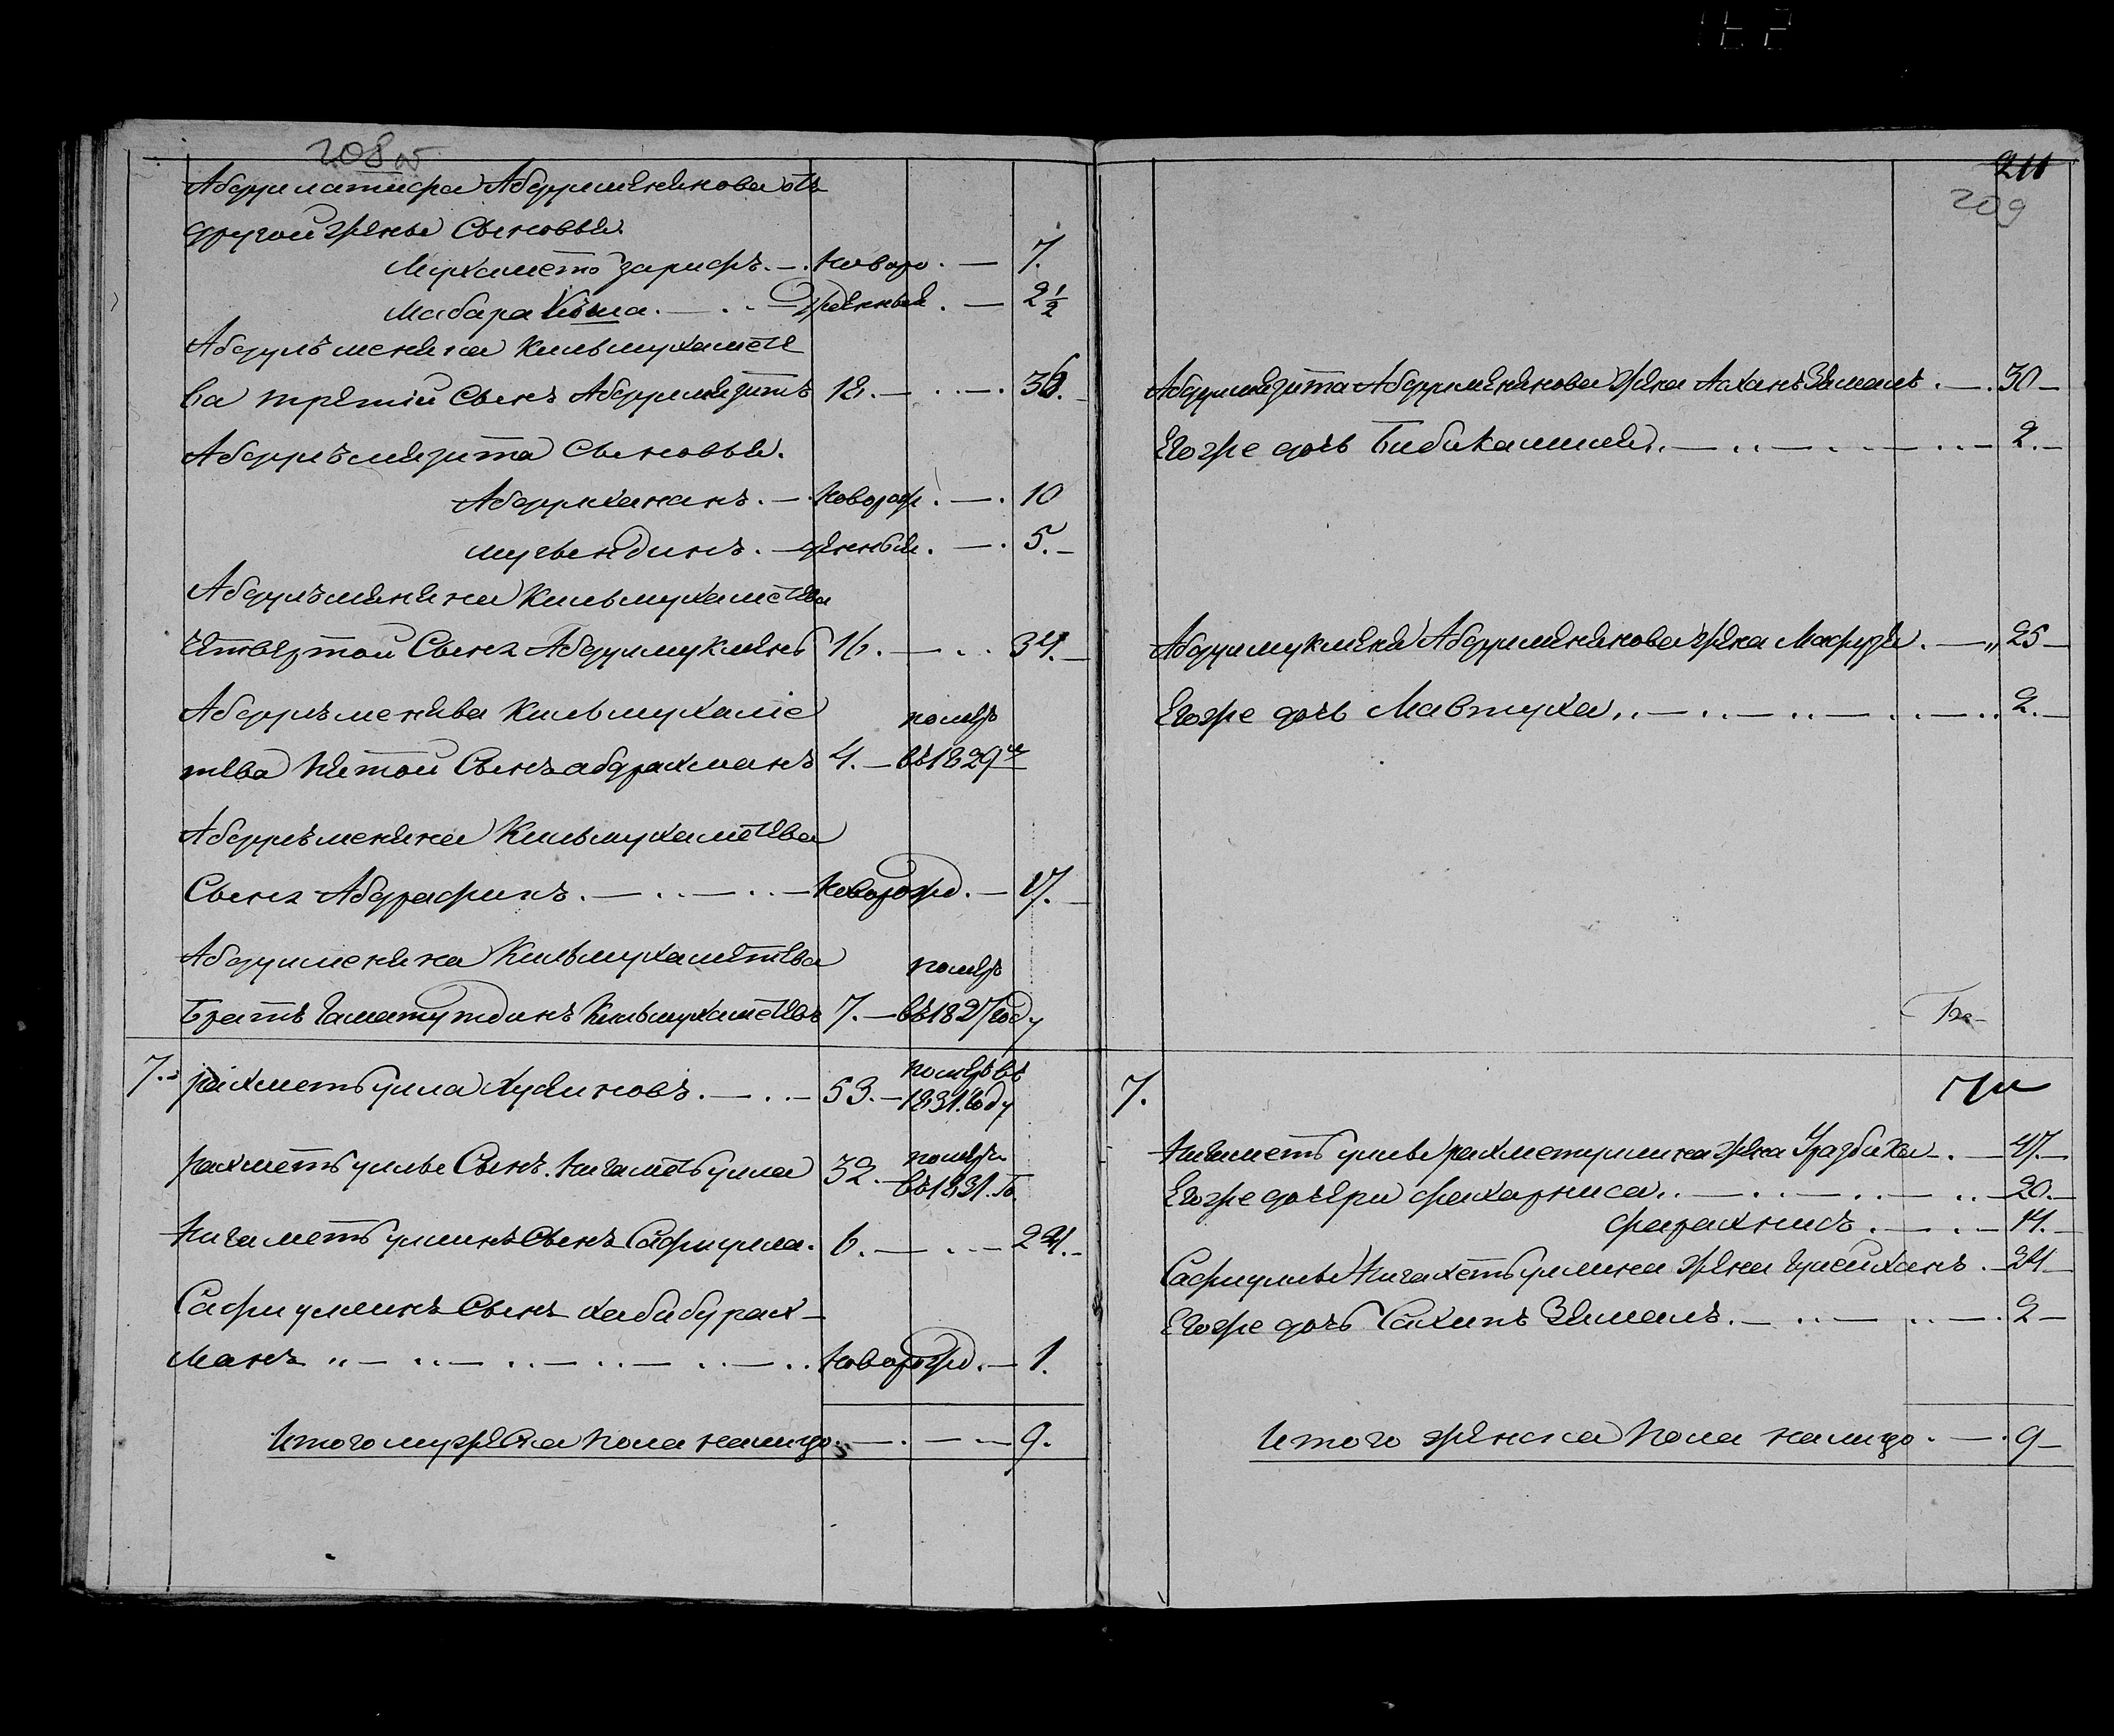 208 об
Абдулатифа Абдулменинова отъ
другой жены Сыновья
Мухаметъ зарифъ. — . новоро . — 7.
Мабара Кша. — . . — жденныя . — 2½
Абдулъ менина Кильмухаметѣ
ва третій Сынъ Абдулмязитъ 18. — . . — . 36. —
Абдулъмязита Сыновья.
Абдулхананъ. — . новорож . — . 10
мугьендинъ. — денныя. — . 5. —
Абдулъменина Кильмухаметева
четвертой Сынъ Абдулмукминъ 16. — . . 34. —
Абдулъменива Кильмухаме
помер
тева пятой Сынъ абдрахманъ 4. — въ 1829м
Абдулъменина Кильмухаметева
Сынъ Абдрафикъ. — . . — . . — новорожд. — 17. —
Абдулменина Кильмухаметева
помер
братъ Гаматутдинъ Кильмухаметевъ 7. — въ 1827 году
7. рахметъ улла Хусиновъ. — . . — 53. — померъ въ
1831. году
рахметъ уллы Сынъ. Нигаметъ улла 32. — помер
въ 1831. го
Нигаметъ уллинъ Сынъ Сафиулла. 6. — . . — 24. —
Сафиуллинъ Сынъ хабибурах-
манъ „ — . . — . . — . . — . . — . . новорожд. — 1.
Итого мужеска пола налицо. — . — — 9.
211
209
Абдулмязита Абдулменинова жена Аханъ Зямалъ. — . 30 —
Его же дочь Бибикамиля. — . . — . . — . . — 2. —
Абдулмукмина Абдулменинова жена Мафузя. — „ 25 —
Его же дочь Мавтуха. . — . . — . . — . . — . . 2. —
7.
Нигаметъ уллы рахметуллина жена Уразбика — . — 47. —
Его же дочери фахарниса. . — . . — . . — . . — 20. —
фарахнисъ . — . . — 14. —
Сафиуллы Нигаметъуллина жена Гулсиханъ . — 24 —
Его же дочь Сахипъ Зямалъ. — . . — . . — . 2 —
Итого женска пола налицо . — . 9 —